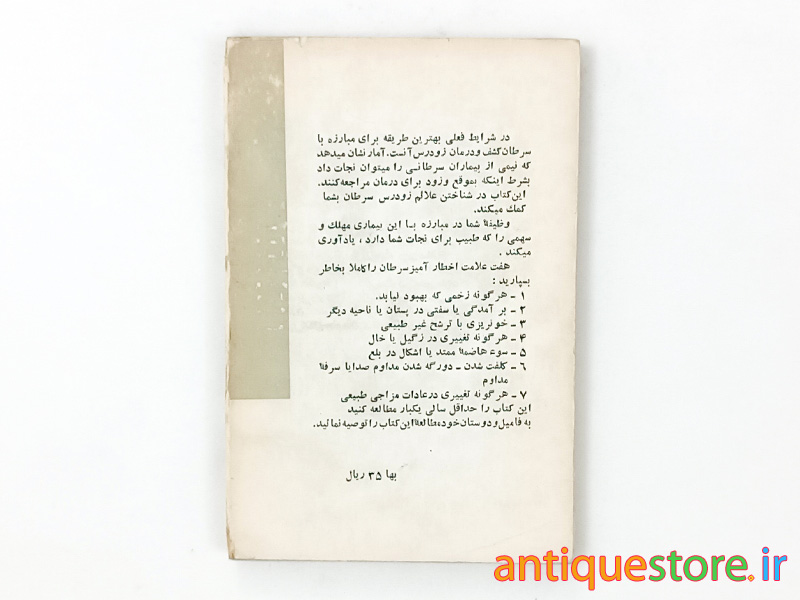 در شرایط فعلی بهترین طریقه برای مبارزه با
سرطان کشف و درمان زودرس آنست. آمار نشان میدهد
که نیمی از بیماران سرطانی را میتوان نجات داد
بشرط اینکه بموقع وزود برای درمان مراجعه کنند.
این کتاب در شناختن علائم زودرس سرطان بشما
کمك میکند.
وظیفهٔ شما در مبارزه با این بیماری مهلك و
سهمی را که طبیب برای نجات شما دارد ، یادآوری
میکند .
هفت علامت اخطار آمیز سرطان را کاملا بخاطر
بسپارید :
۱ - هرگونه زخمی که بهبود نیابد.
۲ - بر آمدگی یا سفتی در پستان یا ناحیه دیگر
۳ - خونریزی یا ترشح غیر طبیعی
۴ - هرگونه تغییری در زگیل یا خال
۵ - سوء هاضمهٔ ممتد یا اشکال در بلع
۶ - کلفت شدن - دورگه شدن مداوم صدا یا سرفهٔ
مداوم
۷ - هرگونه تغییری در عادات مزاجی طبیعی
این کتاب را حداقل سالی یکبار مطالعه کنید
به فامیل و دوستان خود مطالعهٔ این کتاب را توصیه نمائید.
بها ۳۵ ریال
antiquestore.ir